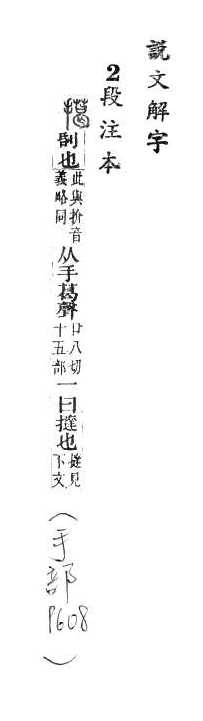 說文解字
2段注本
擖
刮也
此與扴音
義略同
从手葛聲
口八切
十五部
一曰撻也
撻見
下文
(手部
P608)